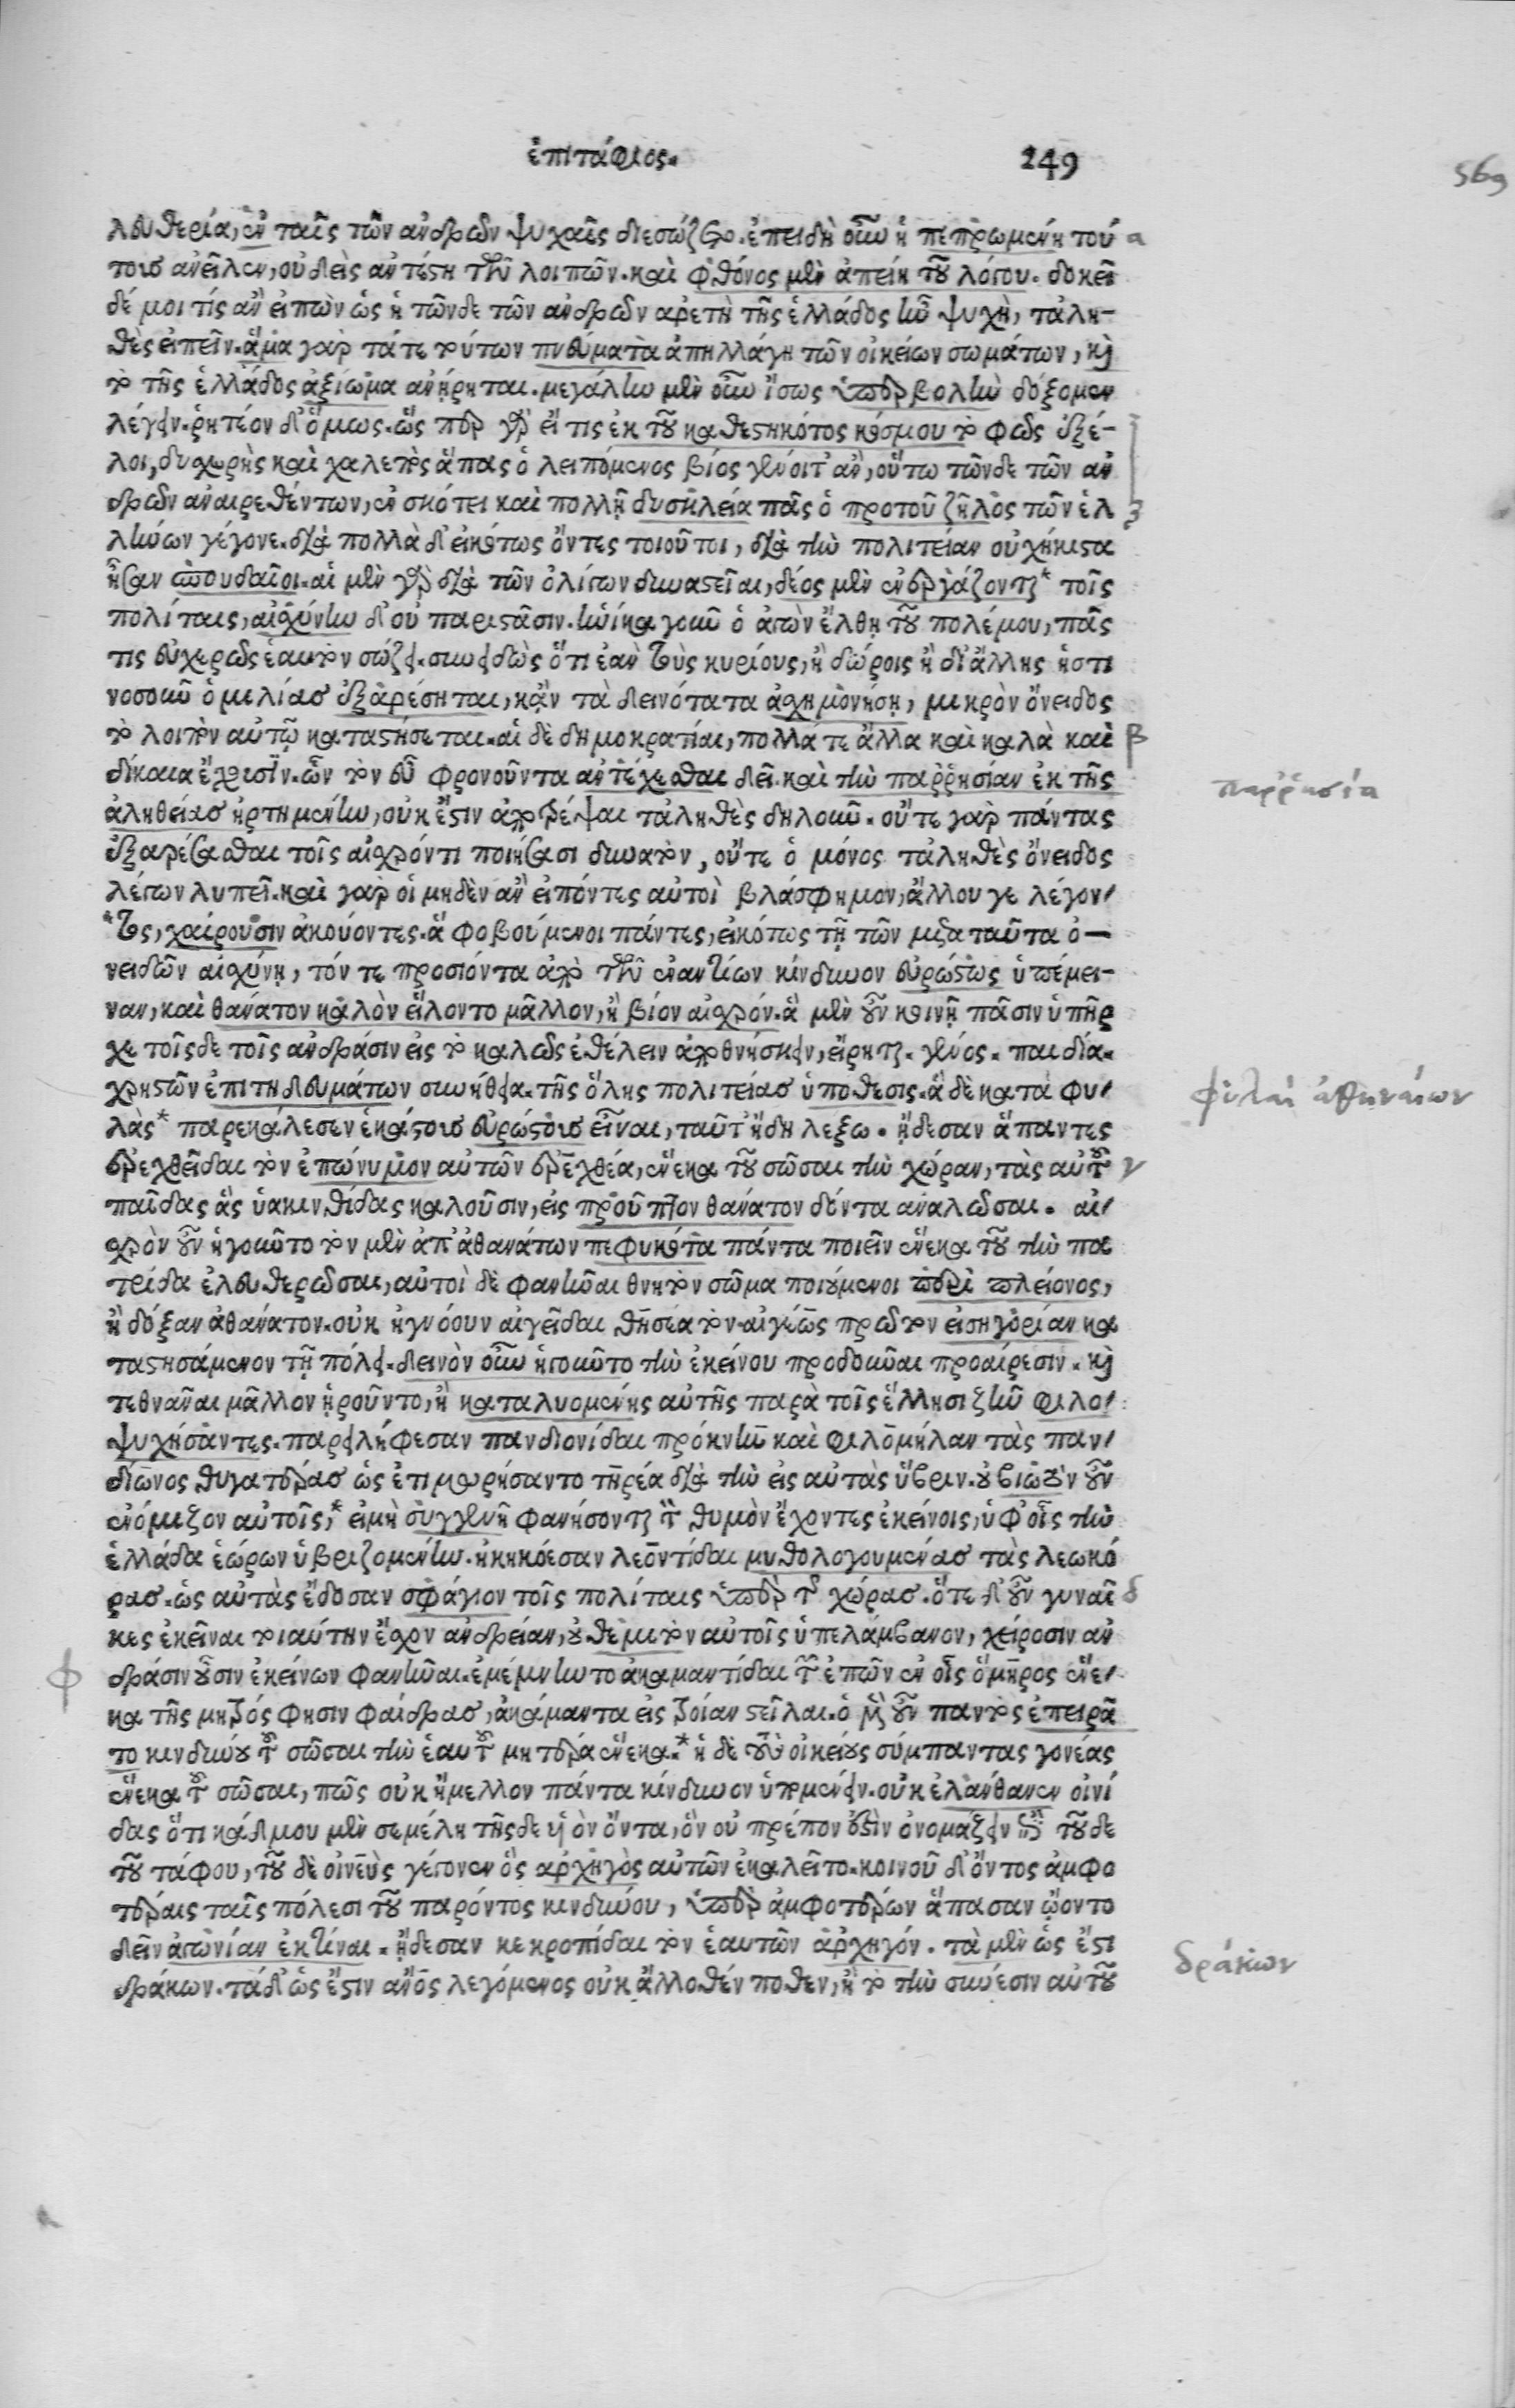 ἐπιτάφιος. 249
569
λευθερία, ἐν ταῖς τῶν ἀνδρῶν ψυχαῖς διεσώζετο. ἐπειδὴ οὖν ἡ πεπρωμένη τού α
τοισ ἀνεῖλεν, οὐδεὶς ἀντέστη τῶν λοιπῶν. καὶ φθόνος μὲν ἀπείη τοῦ λόγου. δοκεῖ
δέ μοι τίς ἂν εἰπὼν ὡς ἡ τῶνδε τῶν ἀνδρῶν ἀρετὴ τῆς ἑλλάδος ἦν ψυχὴ, τἀλη-
θὲς εἰπεῖν. ἅμα γὰρ τά τε τούτων πνεύματα ἀπηλλάγη τῶν οἰκείων σωμάτων, καὶ
τὸ τῆς ἑλλάδος ἀξίωμα ἀνῄρηται. μεγάλην μὲν οὖν ἴσως ὑπερβολὴν δόξομεν
λέγειν. ῥητέον δ' ὅμως. ὥς περ γὰρ εἴ τις ἐκ τοῦ καθεστηκότος κόσμου τὸ φῶς ἐξέ-
λοι, δυχερὴς καὶ χαλεπὸς ἅπας ὁ λειπόμενος βίος γένοιτ' ἂν, οὕτω τῶνδε τῶν ἀν
δρῶν ἀναιρεθέντων, ἐν σκότει καὶ πολλῇ δυσκλείᾳ πᾶς ὁ προτοῦ ζῆλος τῶν ἑλ ξ
λήνων γέγονε. διὰ πολλὰ δ' εἰκότως ὄντες τοιοῦτοι, διὰ τὴν πολιτείαν οὐχήκιστα
ἦσαν σπουδαῖοι. αἱ μὲν γὰρ διὰ τῶν ὀλίγων δυναστεῖαι, δέος μὲν ἐνεργάζονται* τοῖς
πολίταις, αἰσχύνην δ' οὐ παριστᾶσιν. ἡνίκα γοῦν ὁ ἀγὼν ἔλθῃ τοῦ πολέμου, πᾶς
τις εὐχερῶς ἑαυτὸν σώζει. συνειδὼς ὅτι ἐὰν τοὺς κυρίους, ἢ δώροις ἢ δι' ἄλλης ἡστι
νοσοῦν ὁμιλίασ ἐξαρέσηται, κἂν τὰ δεινότατα ἀσχημονήσῃ, μικρὸν ὄνειδος
τὸ λοιπὸν αὐτῷ καταστήσεται. αἱ δὲ δημοκρατίαι, πολλά τε ἄλλα καὶ καλὰ καὶ β
δίκαια ἔχουσιν. ὧν τὸν εὖ φρονοῦντα ἀντέχεσθαι δεῖ. καὶ τὴν παῤῥησίαν ἐκ τῆς
παῤῥησία
ἀληθείασ ἠρτημένην, οὐκ ἔστιν ἀποτρέψαι τἀληθὲς δηλοῦν. οὔτε γὰρ πάντας
ἐξαρέσασθαι τοῖς αἰσχρόν τι ποιήσασι δυνατὸν, οὔτε ὁ μόνος τἀληθὲς ὄνειδος
λέγων λυπεῖ. καὶ γὰρ οἱ μηδὲν ἂν εἰπόντες αὐτοὶ βλάσφημον, ἄλλου γε λέγον/
*τος, χαίρουσιν ἀκούοντες. ἃ φοβούμενοι πάντες, εἰκότως τῇ τῶν μετὰ ταῦτα ὀ—
νειδῶν αἰσχύνῃ, τόν τε προσιόντα ἀπὸ τῶν ἐναντίων κίνδυνον εὐρώστως ὑπέμει-
ναν, καὶ θάνατον καλὸν εἵλοντο μᾶλλον, ἢ βίον αἰσχρόν. ἃ μὲν οὖν κοινῇ πᾶσιν ὑπῆρ
χε τοῖσδε τοῖς ἀνδράσιν εἰς τὸ καλῶς ἐθέλειν ἀποθνήσκειν, εἴρηται. γένος. παιδία.
χρηστῶν ἐπιτηδευμάτων συνήθεια. τῆς ὅλης πολιτείασ ὑπόθεσις. ἃ δὲ κατὰ φυ/
φυλαὶ ἀθηναίων
λὰς* παρεκάλεσεν ἑκάστοισ εὐρώστοισ εἶναι, ταῦτ' ἤδη λέξω. ᾔδεσαν ἅπαντες
ἐρεχθεῖδαι τὸν ἐπώνυμον αὐτῶν ἐρεχθέα, ἕνεκα τοῦ σῶσαι τὴν χώραν, τὰς αὑτοῦ γ
παῖδας ἃς ὑακινθίδας καλοῦσιν, εἰς προὖπτον θάνατον δόντα ἀναλῶσαι. αἰ/
σχρὸν οὖν ἡγοῦντο τὸν μὲν ἀπ' ἀθανάτων πεφυκότα πάντα ποιεῖν ἕνεκα τοῦ τὴν πα
τρίδα ἐλευθερῶσαι, αὐτοὶ δὲ φανῆναι θνητὸν σῶμα ποιούμενοι περὶ πλείονος,
ἢ δόξαν ἀθάνατον. οὐκ ἠγνόουν αἰγεῖδαι θησέα τὸν αἰγέως πρῶτον εἰσηγορίαν κα
ταστησάμενον τῇ πόλει. δεινὸν οὖν ἡγοῦντο τὴν ἐκείνου προδοῦναι προαίρεσιν. καὶ
τεθνᾶναι μᾶλλον ᾑροῦντο, ἢ καταλυομένης αὐτῆς παρὰ τοῖς ἕλλησι ζῆν φιλο/
ψυχήσαντες. παρειλήφεσαν πανδιονίδαι πρόκνην καὶ φιλομήλαν τὰς παν/
δίωνος θυγατέρασ ὡς ἐτιμωρήσαντο τηρέα διὰ τὴν εἰς αὐτὰς ὕβριν. οὐ βιωτὸν οὖν
ἐνόμιζον αὐτοῖς,* εἰμὴ συγγενῆ φανήσονται τὸν θυμὸν ἔχοντες ἐκείνοις, ὑφ' οἷς τὴν
ἑλλάδα ἑώρων ὑβριζομένην. ἠκηκόεσαν λεοντίδαι μυθολογουμένασ τὰς λεωκό
ρασ. ὡς αὑτὰς ἔδοσαν σφάγιον τοῖς πολίταις ὑπὲρ τῆς χώρασ. ὅτε δ' οὖν γυναῖ δ
κες ἐκεῖναι τοιαύτην ἔσχον ἀνδρείαν, οὐ θεμιτὸν αὐτοῖς ὑπελάμβανον, χείροσιν ἀν
φ δράσιν οὖσιν ἐκείνων φανῆναι. ἐμέμνηντο ἀκαμαντίδαι τῶν ἐπῶν ἐν οἷς ὅμηρος ἕνε/
κα τῆς μητρός φησιν φαίδρασ, ἀκάμαντα εἰς τροίαν στεῖλαι. ὁ μὲν οὖν παντὸς ἐπειρᾶ
το κινδύνου τοῦ σῶσαι τὴν ἑαυτοῦ μητέρα ἕνεκα.* ἡ δὲ τοὺς οἰκείους σύμπαντας γονέας
ἕνεκα τοῦ σῶσαι, πῶς οὐκ ἤμελλον πάντα κίνδυνον ὑπομένειν. οὐκ ἐλάνθανεν οἰνί
δας ὅτι κάδμου μὲν σεμέλη τῆσδε ὑὸν ὄντα, ὃν οὐ πρέπον ἐστὶν ὀνομάζειν ἐπὶ τοῦδε
τοῦ τάφου, τοῦ δὲ οἰνεὺς γέγονεν ὃς ἀρχηγὸς αὐτῶν ἐκαλεῖτο. κοινοῦ δ' ὄντος ἀμφο
τέραις ταῖς πόλεσι τοῦ παρόντος κινδύνου, ὑπὲρ ἀμφοτέρων ἅπασαν ᾤοντο
δεῖν ἀγωνίαν ἐκτῖναι. ᾔδεσαν κεκροπίδαι τὸν ἑαυτῶν ἀρχηγόν. τὰ μὲν ὡς ἔστι
δράκων
δράκων. τὰ δ' ὡς ἔστιν ἄνος λεγόμενος οὐκ ἄλλοθέν ποθεν, ἢ τὸ τὴν σύνεσιν αὐτοῦ